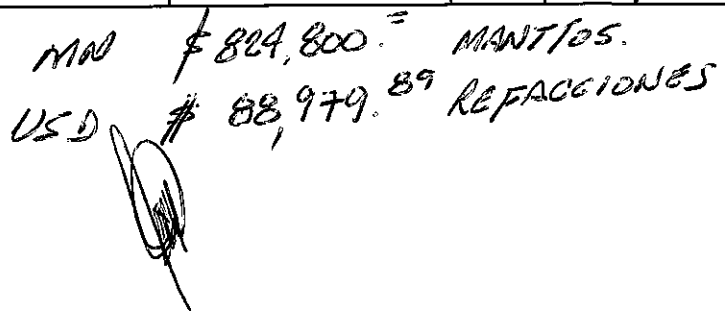 MN $824,800.= MANTTOS.
USD $ 88,979.89 REFACCIONES